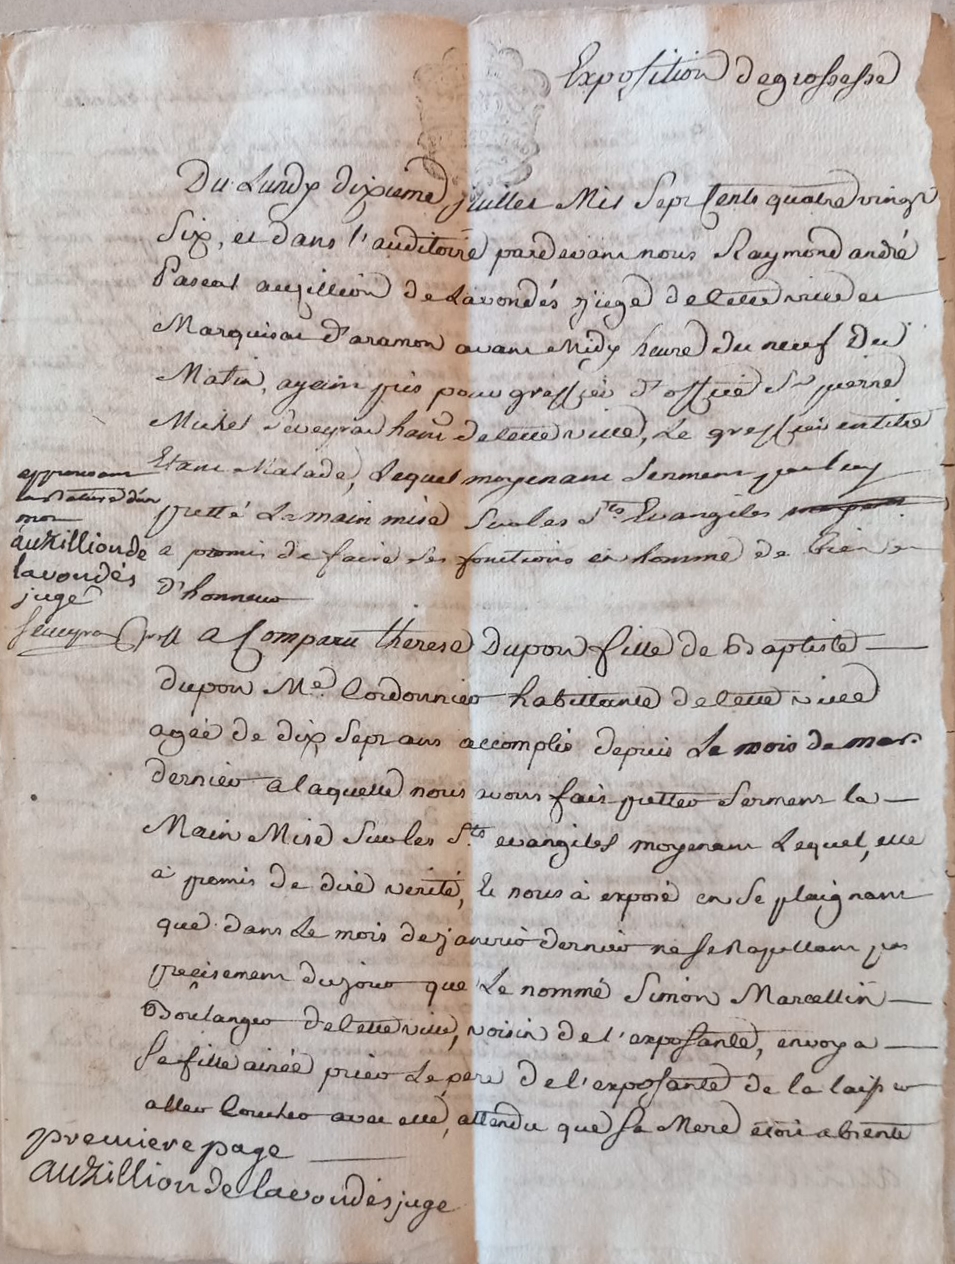 Exposition de grossesse
Du Lundy dixieme juillet Mil Sept Cents quatre vingt
Six, et dans l'auditoire pardevant nous Raymond andré
Pascal auzillion de Lavondés juge de cette ville et
Marquisat d'aramon avant Midy heure du neuf du
Matin, ayant pris pour greffier d'office Sr pierre
Michel Seveyrac habt de cette ville, Le greffier en titre
Etant Malade, Lequel moyenant Serment par luy
pretté La main mise Sur les Sts Evangiles
a promis de faire Ses fonctions en homme de bien et
d'honneur
approuvant
la rature d'un
mot
auzillion de
lavondés
juge
Seveyrac Greff
a Comparu therese Dupon fille de Baptiste
dupon Me. Cordonnier habittante de cette ville
agée de dix Sept ans accomplis depuis Le mois de mars
dernier a laquelle nous avons fait pretter Serment la
Main Mise Sur les Sts. evangiles moyenant Lequel, elle
à promis de dire verité, Et nous à exposé en Se plaignant
que dans Le mois de janvier dernier ne Se Rapellant pas
precisement du jour que Le nommé Simon Marcellin
Boulanger de cette ville, voisin de l'exposante, envoya
Sa fille ainée prier Le pere de l'exposante de la laisser
aller Coucher avec elle, attendu que Sa Mere étoit absente
premiere page
auzillion de lavondés juge